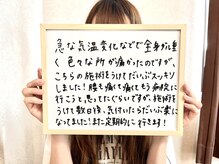 急な気温変化などで全身が重く
色々な所が痛かったのですが、
こちらの施術をうけてだいぶスッキリ
しました！腰も痛て痛てもう病院に
行こうと思ってたぐらいですが、施術を
うけて数日後、気付いたらだいぶ楽に
なってました！また定期的に行きます！